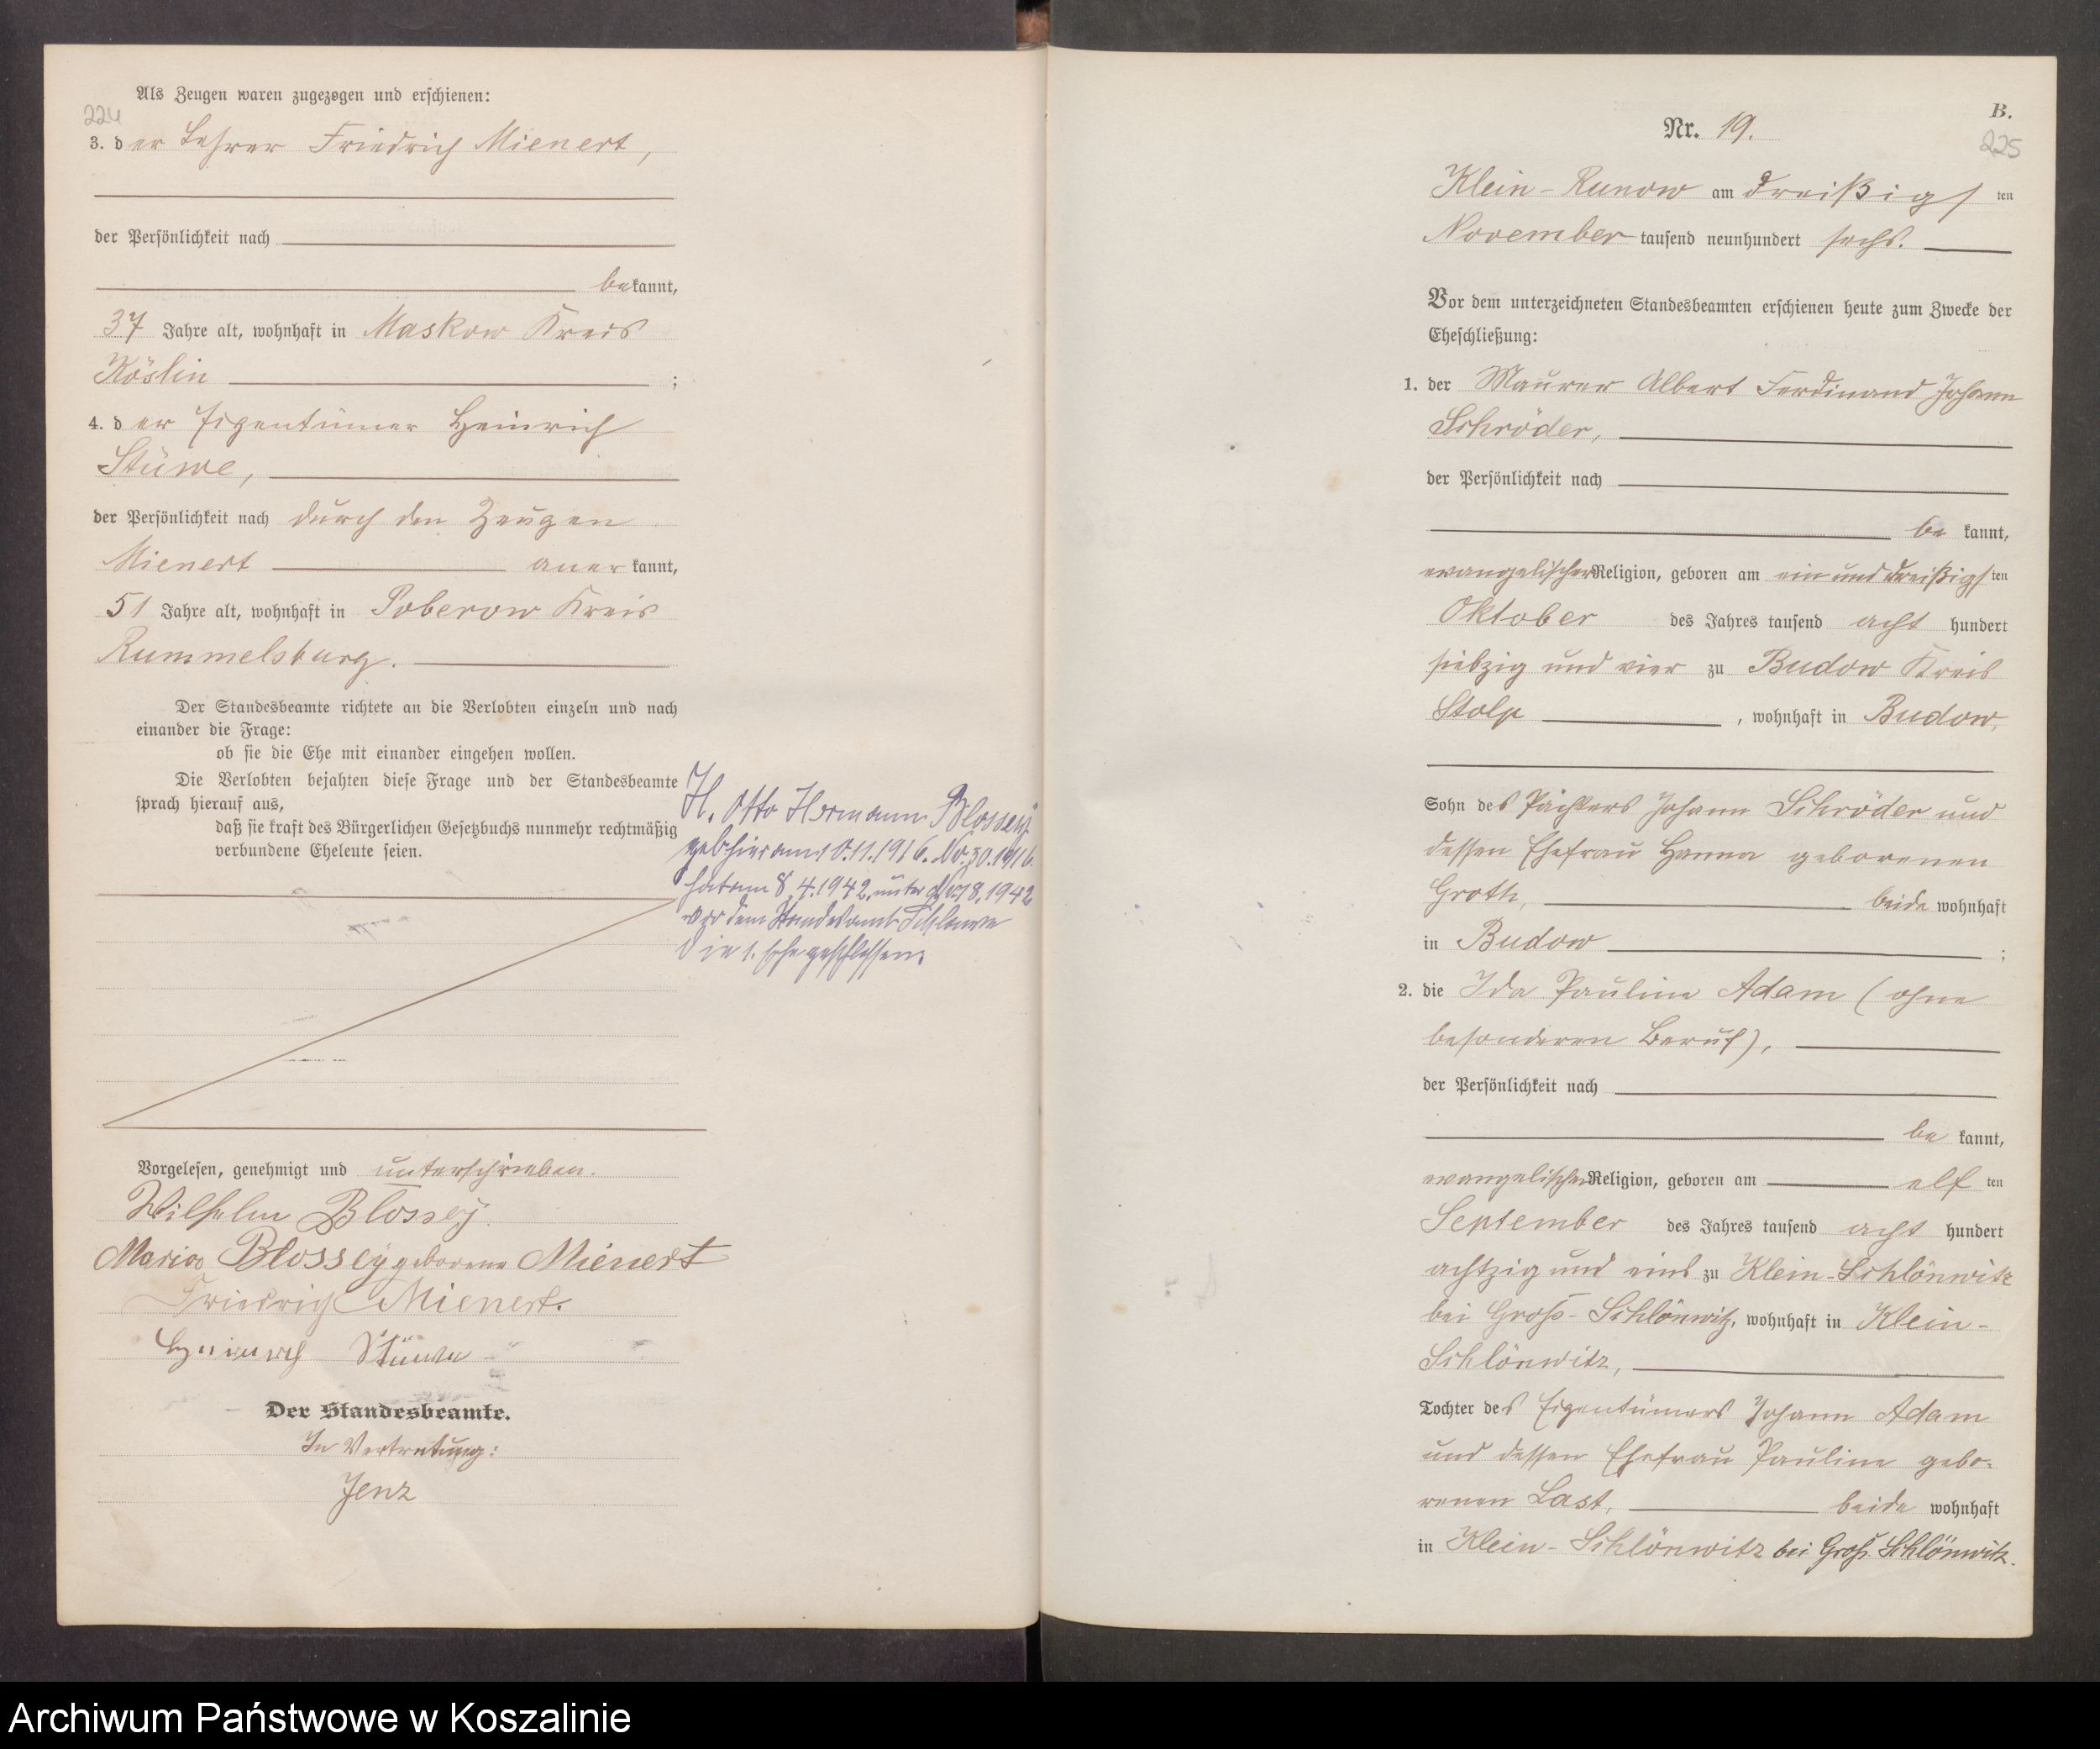 224
Als Zeugen waren zugezogen und erschienen:
3. der Lehrer Friedrich Mienert,
der Persönlichkeit nach
bekannt,
37 Jahre alt, wohnhaft in Maskow Kreis
Köslin ;
4. der Eigentümer Heinrich
Stüwe,
der Persönlichkeit nach durch den Zeugen
Mienert anerkannt,
51 Jahre alt, wohnhaft in Poberow Kreis
Rummelsburg.
Der Standesbeamte richtete an die Verlobten einzeln und nach
einander die Frage:
ob sie die Ehe mit einander eingehen wollen.
Die Verlobten bejahten diese Frage und der Standesbeamte
sprach hierauf aus,
daß sie kraft des Bürgerlichen Gesetzbuchs nunmehr rechtmäßig
verbundene Eheleute seien.
H. Otto Hermann Blossey
geb hier am 10.11.1916. No. 30.1916.
hat am 8.4.1942 unter No 18.1942
vor dem Standesamt Schlawe
die 1. Ehe geschlossen.
Vorgelesen, genehmigt und unterschrieben.
Wilhelm Blossey.
Maria Blossey geborene Mienert
Friedrich Mienert.
Heinrich Stüwe
Der Standesbeamte.
In Vertretung:
Jenz
B.
Nr. 19.
225
Klein-Runow am dreißigsten
November tausend neunhundert sechs.
Vor dem unterzeichneten Standesbeamten erschienen heute zum Zwecke der
Eheschließung:
1. der Maurer Albert Ferdinand Johann
Schröder,
der Persönlichkeit nach
be kannt,
evangelischer Religion, geboren am ein und dreißigsten
Oktober des Jahres tausend acht hundert
siebzig und vier zu Budow Kreis
Stolp , wohnhaft in Budow,
Sohn des Pächters Johann Schröder und
dessen Ehefrau Hanna geborenen
Groth, beide wohnhaft
in Budow ;
2. die Ida Pauline Adam (ohne
besonderen Beruf),
der Persönlichkeit nach
be kannt,
evangelischer Religion, geboren am elf ten
September des Jahres tausend acht hundert
achtzig und eins zu Klein-Schlönwitz
bei Groß-Schlönwitz, wohnhaft in Klein-
Schlönwitz,
Tochter des Eigentümers Johann Adam
und dessen Ehefrau Pauline gebo-
renen Last, beide wohnhaft
in Klein-Schlönwitz bei Groß Schlönwitz.
Archiwum Państwowe w Koszalinie